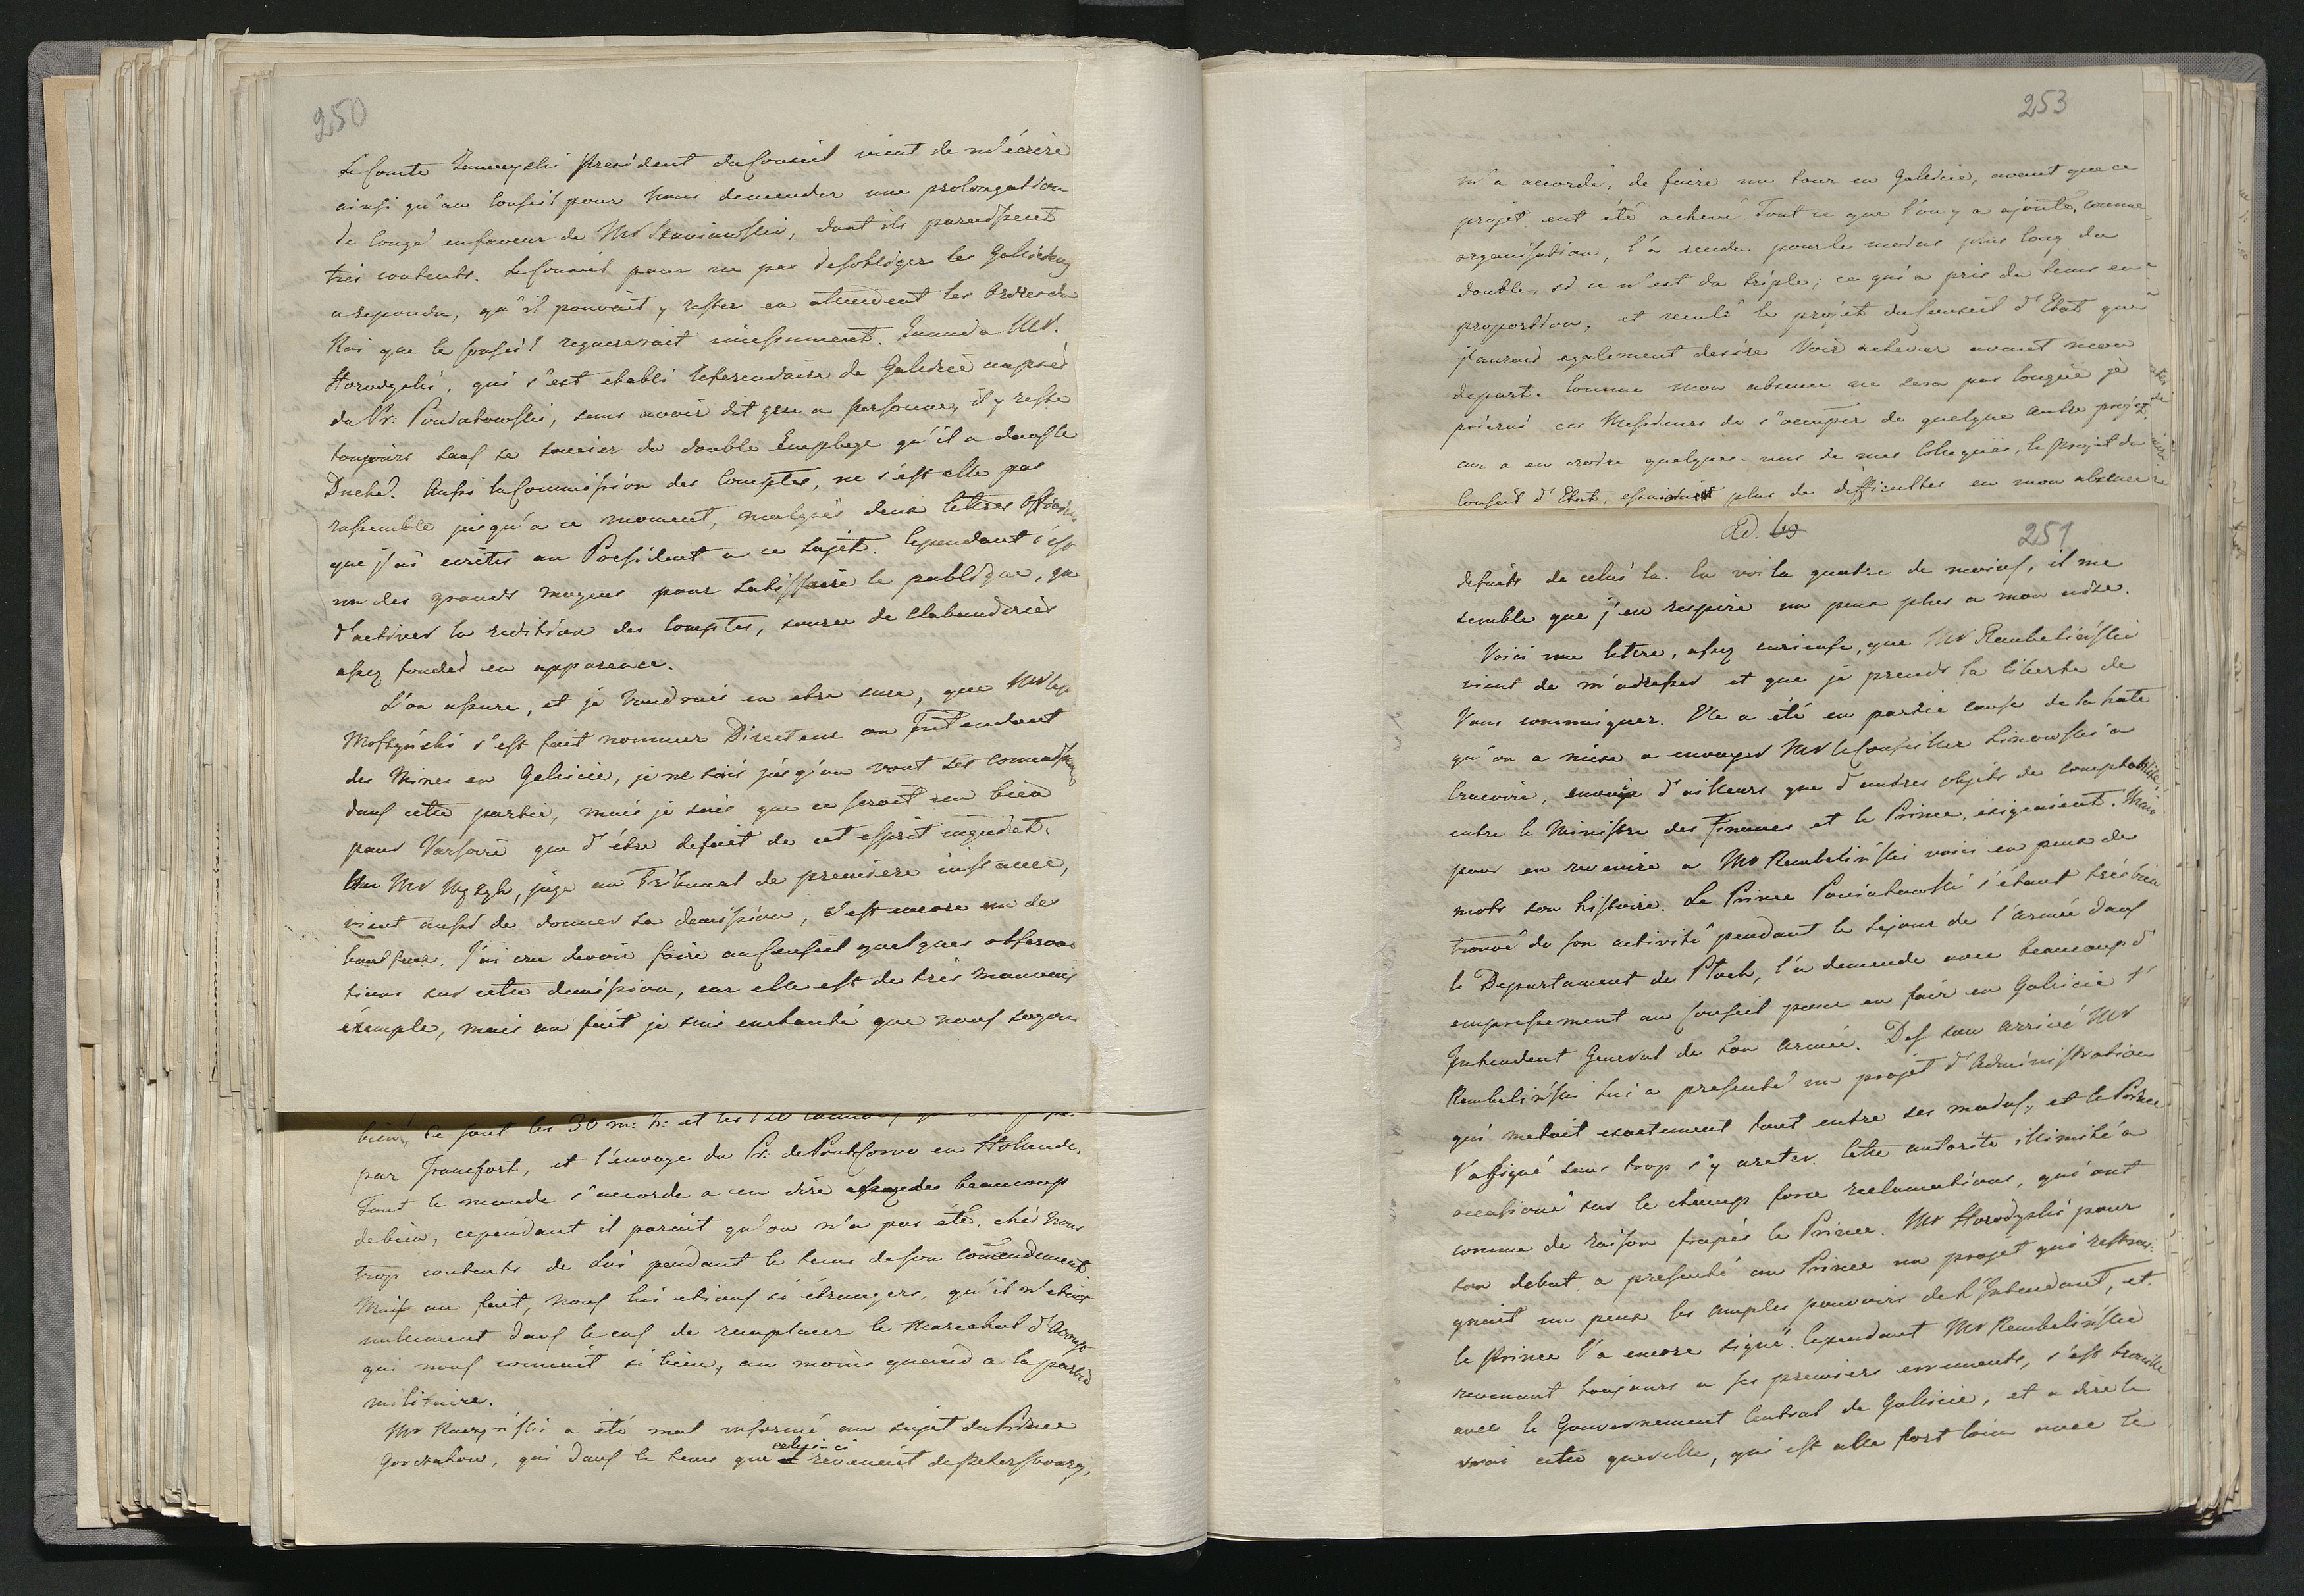 250
Le Comte Zamoyski President du Conseil vient de m'écrire
ainsi qu'au Conseil pour nous demender une prolongation
de Congé en faveur de Mr Staniawski, dont ils paraissent
très contents. Le Conseil pour ne pas desobliger les Galiciens
a repondu, qu'il pouvait y rester en attendent les Ordres du
Roi que le Conseil requererait incessament. Quand a Mr.
Horodyski, qui s'est etabli Referendaire de Galicie aupred
du Pr: Poniatowski, sans avoir dit gare a personne, il y reste
toujours sauf se soucier du double Employe qu'il a dans le
Duché. Aussi la Commission des Comptes, ne s'est elle pas
rassemble jusqu'a ce moment, malgrés deux lettres
que j'ai ecrites au President a ce sujet. Cependant c'est
un des grands moyens pour satisffaire le publique, que
d'activer la redition des Comptes, source de Clabauderies
assez fondés en apparence.
L'on assure, et je voudrais en etre sure, que Mr
Mostyński s'est fait nommer Directeur ou Intendant
des Mines en Galicie, je ne sais jusqu'ou vont ses
dans cette partie, mais je sais que ce seroit un bien
pour Varsovie que d'être defait de cet esprit inquiet.
Un Mr Węgzyk, juge au Tribunal de premiere instance,
vient aussi de donner sa demission, c'est encore un de
J'ai cru devoir faire au Conseil quelques observa
tions sur cette demission, car elle est de très mauvais
éxemple, mais au fait je suis enchanté que nous soyons
bien, Ce sont les 30 m: h: et les 120
par Francfort, et l'envoye du Pr: de PonteCorvo en Hollande,
Tout le monde s'accorde a en dire beaucoup
de bien, cependant il parait qu'on n'a pas été, chés nous
trop contents de Lui pendant le tems de son comendement
Mais au fait, nous lui etions si étrangers, qu'il n'etait
nullement dans le cas de remplacer le Marechal d'Avoust
qui nous connait si bien, au moins quand a la partie
militaire.
Mr a été mal informé au sujet du Prince
Gorczakow, qui dans le tems que celui-ci revenait de petersbourg,
253
m'a accordé, de faire un tour en Galicie, avant que ce
projet eut été achevé. Tout ce que l'on y a ajouté, comme
organisation, l'a rendu pour le moins plus long du
double, si ce n'est du triple; ce qui a pris du tems en
proportion, et reculé le projet du Conseil d'Etat que
j'aurais egalement desire Voir achever avant mon
depart. Comme mon absence ne sera pas longue je
prierai ces Messieurs de s'occuper de quelque autre projet
car a en croire quelques-uns de mes Collegues, le projet du
Conseil d'Etat, plus de difficultes en mon absence
251
defaits de celui la. En voila quatre de moins, il me
semble que j'en respire un peu plus a mon aise.
Voici une lettre, assez curieuse, que Mr Rembeliński
vient de m'adresser et que je prends la liberte de
Vous comuniquer. Elle a été en partie cause de la hate
qu'on a mise a envoyer Mr le Conseiller Linowski a
Cracovie, envoi d'ailleurs que d'autres objets de comptabilité,
entre le Ministre des Finances et le Prince, exigeaient. Mais
pour en revenire a Mr Rembeliński voici en peu de
mots son histoire. Le Prince Poniatowski s'étant très bien
trouvé de son activité pendant le sejour de l'armée dans
le Departament de Płock, l'a demende avec beaucoup d'
empressement au Conseil pour en fair en Galicie l'
Intendent General de son Armée. Des son arrivé Mr
Rembeliński lui a presenté un projet d'Administration
qui metait exactement tout entre ses mains, et le Prince
l'a signé sans trop s'y areter. Cette autorite illimité a
occasioné sur le champ force reclamations, qui ont
comme de raison frapés le Prince. Mr Horodyski pour
son debut a presenté au Prince un projet qui restrai-
gnait un peu les amples pouvoirs de l'Intendant, et
le Prince l'a encore signé. Cependant Mr Rembeliński
revenant toujours a ses premiers errements, s'est brouille
avec le Gouvernement Central de Galicie, et a dire le
vrai cette querelle, qui est allé fort loin avec le